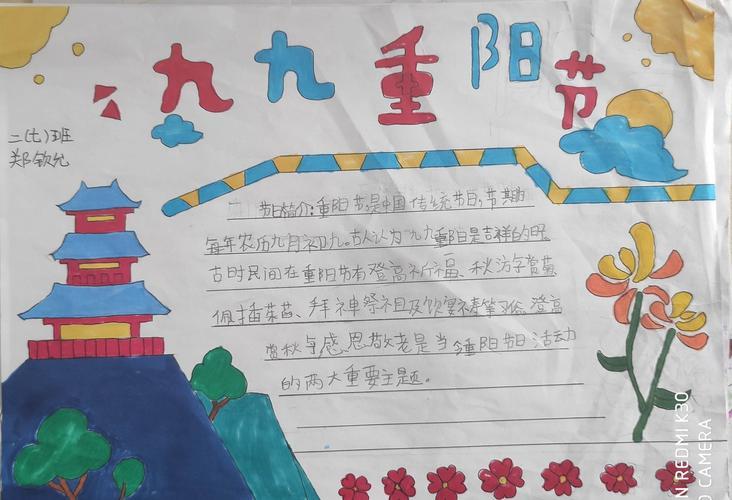 九九重阳节
二(七)班
郑钦允
一 节日简介:重阳节,是中国传统节日,节期为
每年农历九月初九。古人认为九九重阳是吉祥的日
古时民间在重阳节有登高祈福、秋游赏菊
佩插茱萸、拜神祭祖及饮宴祷寿 登高
赏秋与感恩敬老是当重阳节日活动
的两大重要主题。
N REDMI K30
D CAMERA